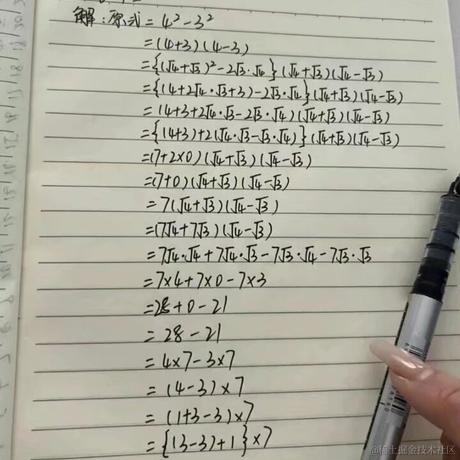 解:原式=4²-3²
=(4+3)(4-3)
={(√4+√3)²-2√3·√4}(√4+√3)(√4-√3)
={(4+2√4·√3+3)-2√3·√4}(√4+√3)(√4-√3)
=(4+3+2√4·√3-2√3·√4)(√4+√3)(√4-√3)
={(4+3)+2(√4·√3-√3·√4)}(√4+√3)(√4-√3)
=(7+2×0)(√4+√3)(√4-√3)
=(7+0)(√4+√3)(√4-√3)
=7(√4+√3)(√4-√3)
=(7√4+7√3)(√4-√3)
=7√4·√4+7√4·√3-7√3·√4-7√3·√3
=7×4+7×0-7×3
=28+0-21
=28-21
=4×7-3×7
=(4-3)×7
=(1+3-3)×7
={(3-3)+1}×7
@稀土掘金技术社区